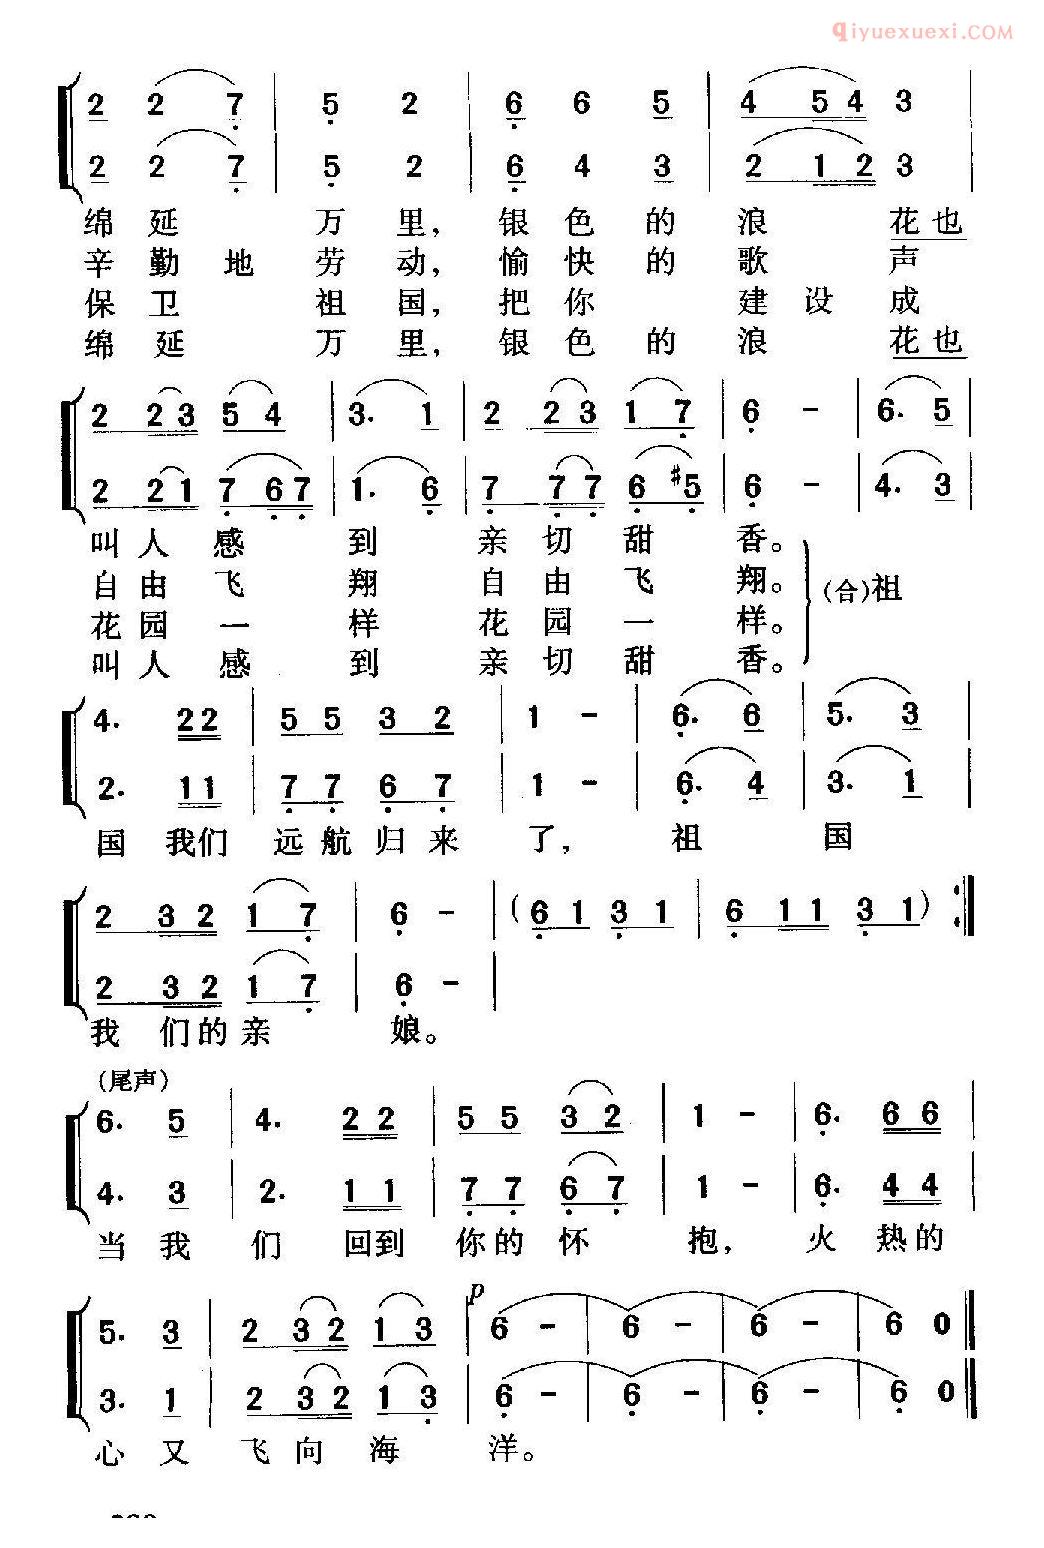 qiyuexuexi.COM
2 2 7 | 5 2 | 6 6 5 | 4 5 4 3 |
2 2 7 | 5 2 | 6 4 3 | 2 1 2 3 |
绵 延 万 里， 银 色 的 浪 花 也
辛 勤 地 劳 动， 愉 快 的 歌 声
保 卫 祖 国， 把 你 建 设 成
绵 延 万 里， 银 色 的 浪 花 也
2 2 3 5 4 | 3. 1 | 2 2 3 1 7 | 6 - | 6. 5 |
2 2 1 7 6 7 | 1. 6 | 7 7 7 6 #5 | 6 - | 4. 3 |
叫 人 感 到 亲 切 甜 香。
自 由 飞 翔 自 由 飞 翔。 (合)祖
花 园 一 样 花 园 一 样。
叫 人 感 到 亲 切 甜 香。
4. 2 2 | 5 5 3 2 | 1 - | 6. 6 | 5. 3 |
2. 1 1 | 7 7 6 7 | 1 - | 6. 4 | 3. 1 |
国 我们 远 航 归 来 了， 祖 国
2 3 2 1 7 | 6 - | (6 1 3 1 | 6 1 1 3 1) :|
2 3 2 1 7 | 6 - |
我 们 的 亲 娘。
(尾声)
6. 5 | 4. 2 2 | 5 5 3 2 | 1 - | 6. 6 6 |
4. 3 | 2. 1 1 | 7 7 6 7 | 1 - | 6. 4 4 |
当 我 们 回到 你 的 怀 抱， 火 热 的
p
5. 3 | 2 3 2 1 3 | 6 - | 6 - | 6 - | 6 0 ||
3. 1 | 2 3 2 1 3 | 6 - | 6 - | 6 - | 6 0 ||
心 又 飞 向 海 洋。